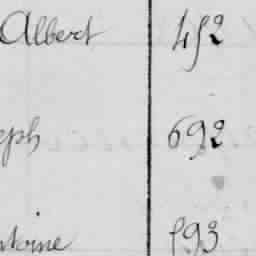 Albert 452
eph 692
toine 893